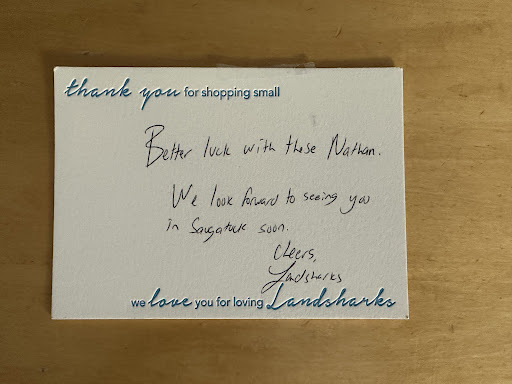 thank you for shopping small
Better luck with these Nathan.
We look forward to seeing you
in Saugatuck soon.
Cheers,
Landsharks
we love you for loving Landsharks